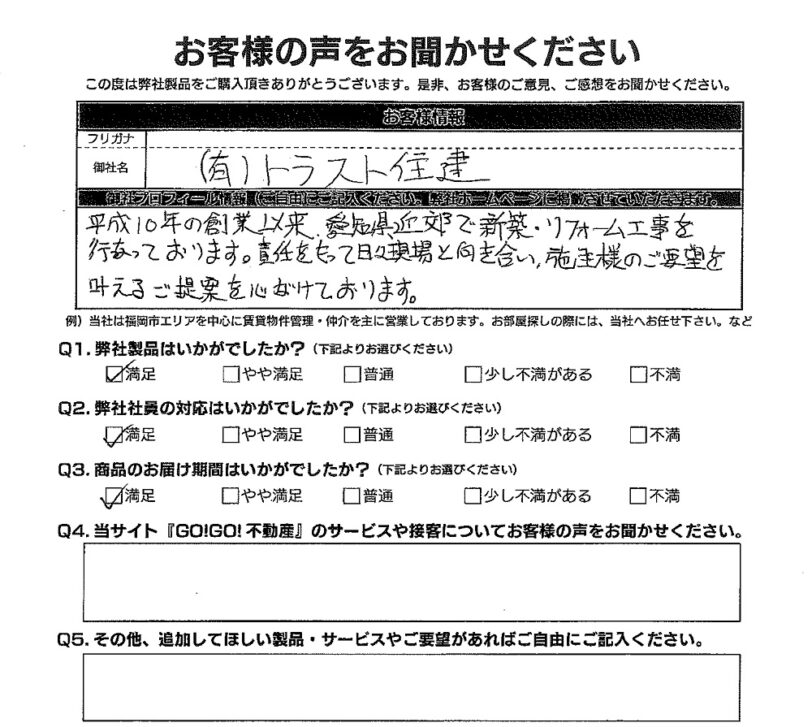 お客様の声をお聞かせください
この度は弊社製品をご購入頂きありがとうございます。是非、お客様のご意見、ご感想をお聞かせください。
お客様情報
フリガナ
御社名 (有)トラスト住建
御社プロフィール情報(ご自由にご記入ください。弊社ホームページに掲載させていただきます。
平成10年の創業以来、愛知県近郊で新築・リフォーム工事を
行なっております。責任をもって日々現場と向き合い、施主様のご要望を
叶えるご提案を心がけております。
例)当社は福岡市エリアを中心に賃貸物件管理・仲介を主に営業しております。お部屋探しの際には、当社へお任せ下さい。など
Q1.弊社製品はいかがでしたか?(下記よりお選びください)
☑満足 □やや満足 □普通 □少し不満がある □不満
Q2.弊社社員の対応はいかがでしたか?(下記よりお選びください)
☑満足 □やや満足 □普通 □少し不満がある □不満
Q3.商品のお届け期間はいかがでしたか?(下記よりお選びください)
☑満足 □やや満足 □普通 □少し不満がある □不満
Q4.当サイト『GO!GO!不動産』のサービスや接客についてお客様の声をお聞かせください。
Q5.その他、追加してほしい製品・サービスやご要望があればご自由にご記入ください。